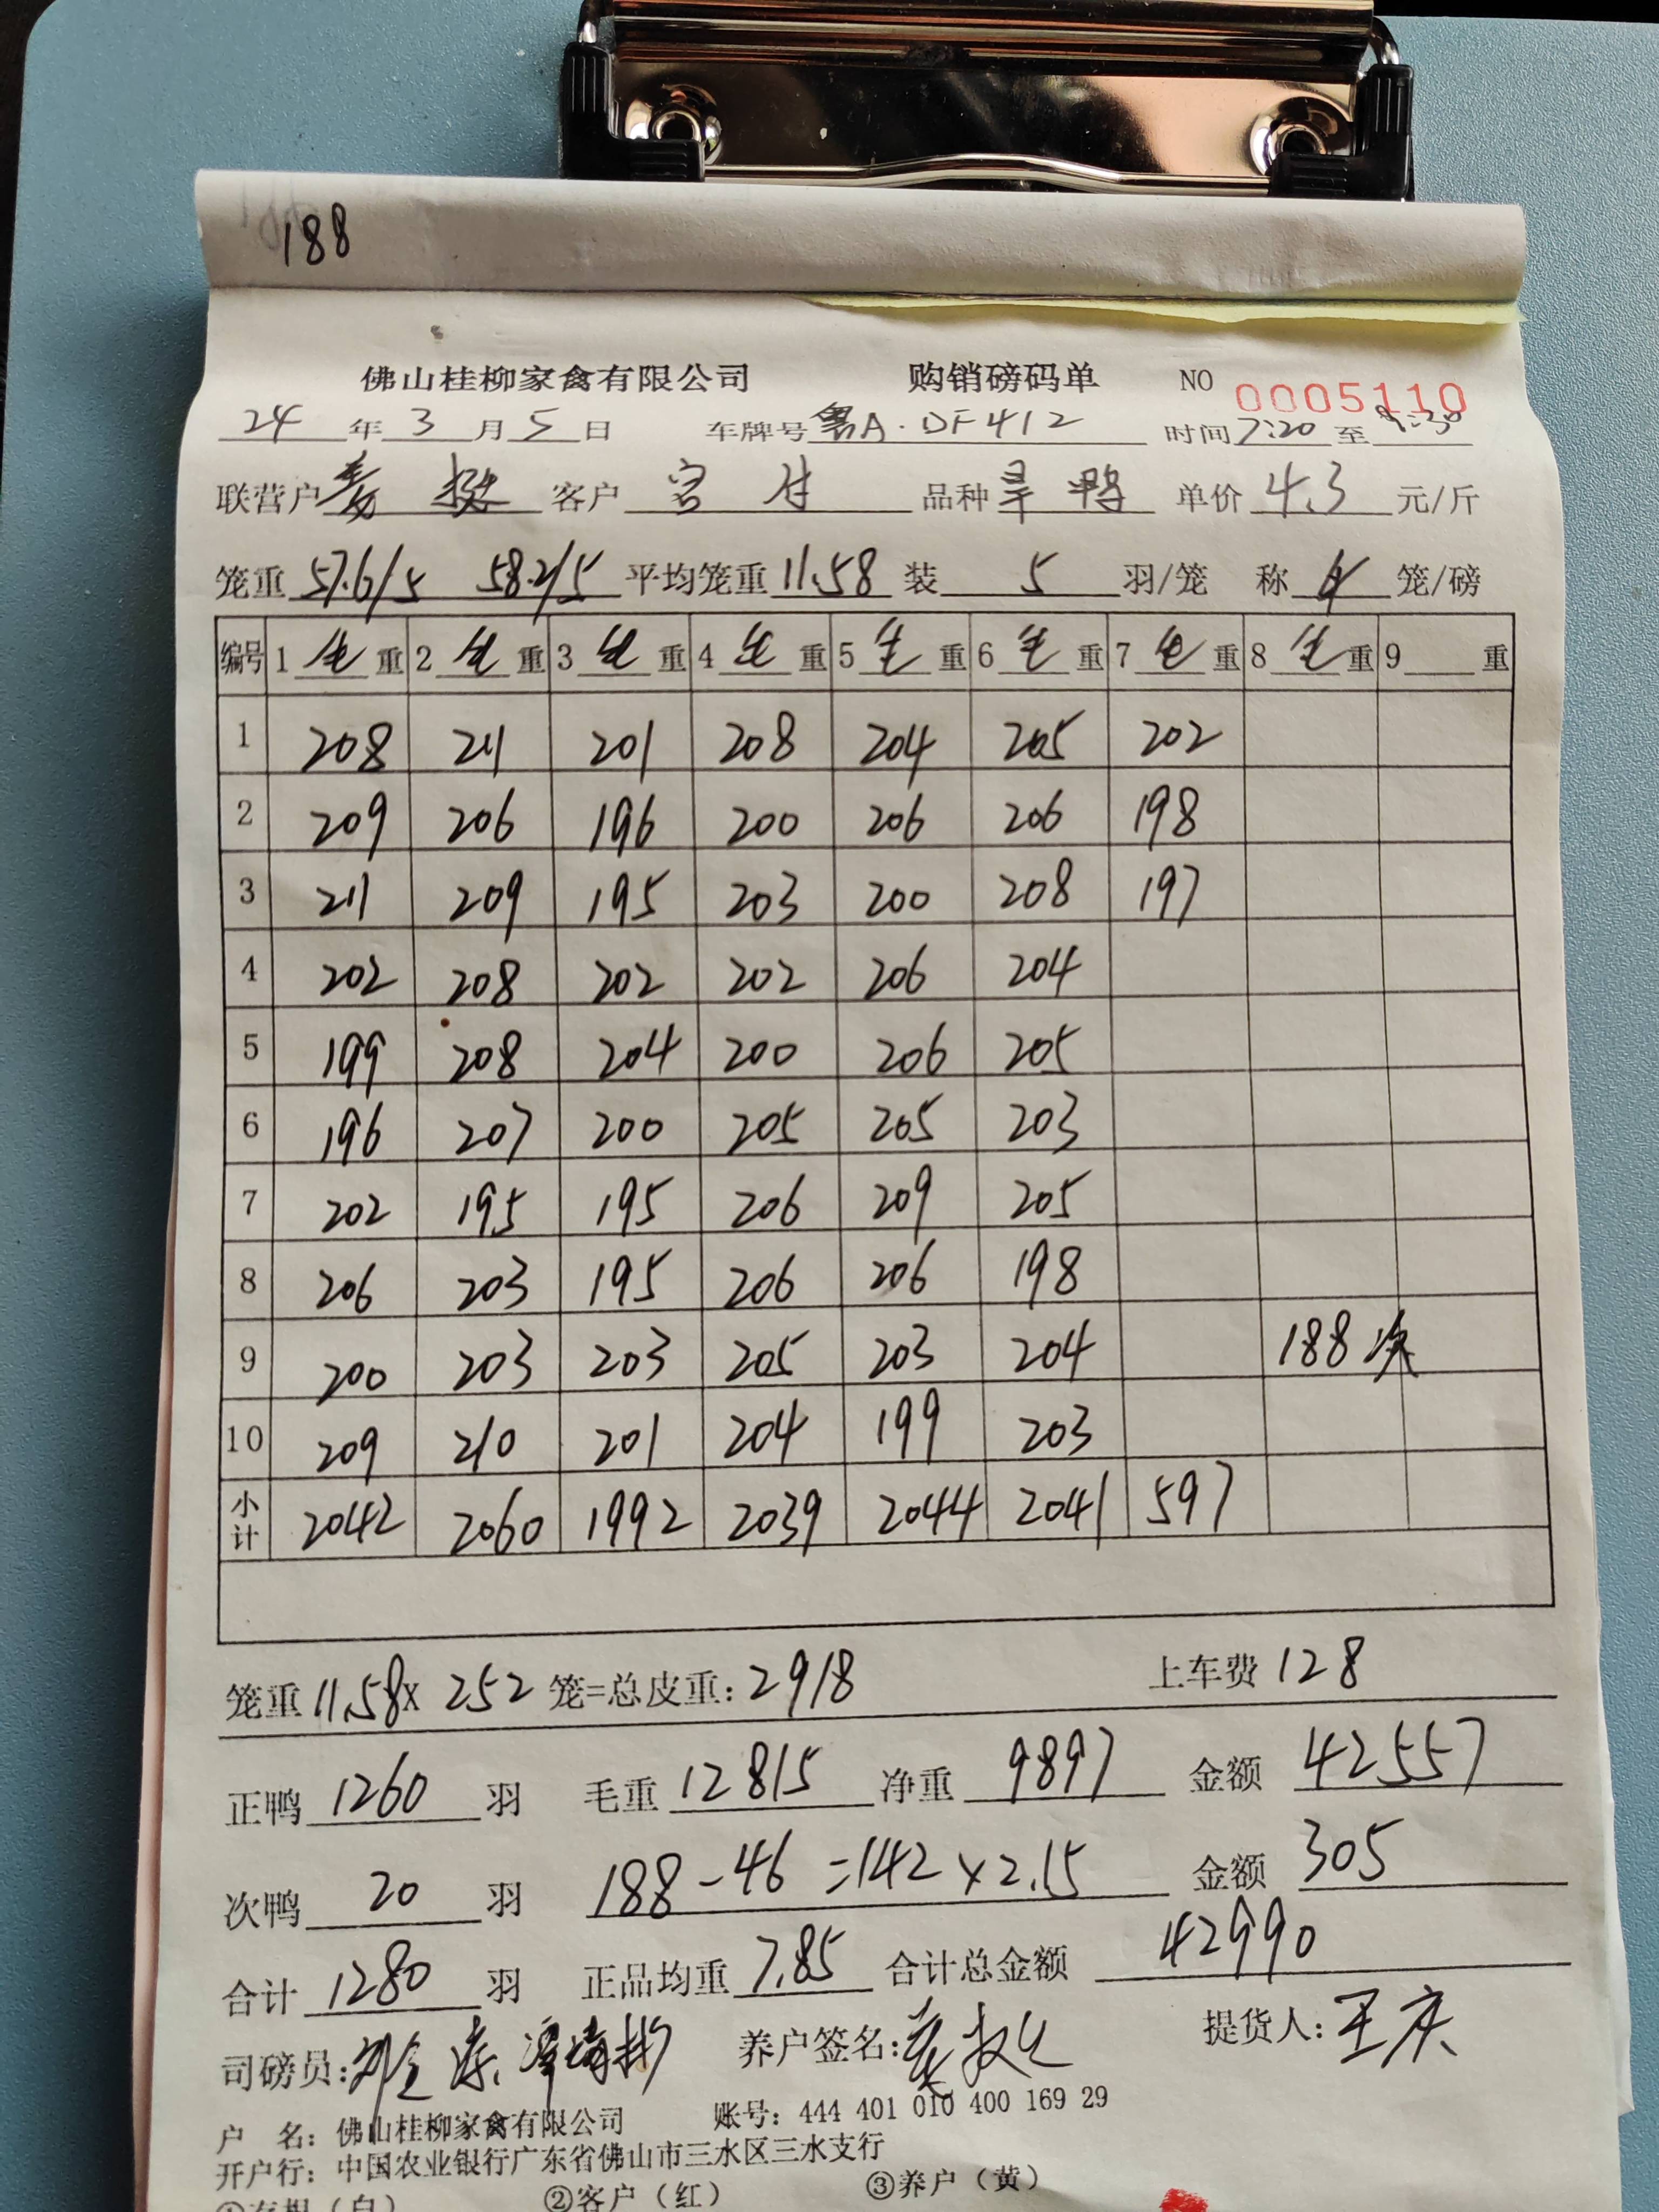 188
佛山桂柳家禽有限公司 购销磅码单 NO 0005110
24年3月5日 车牌号 A·DF412 时间7:20至9:30
联营户 客户 品种旱鸭 单价4.3元/斤
笼重57.6/5 58.2/5 平均笼重11.58 装5羽/笼 称4笼/磅
编号 1毛重 2毛重 3毛重 4毛重 5毛重 6毛重 7毛重 8毛重 9 重
1 208 211 201 208 204 205 202
2 209 206 196 200 206 206 198
3 211 209 195 203 200 208 197
4 202 208 202 202 206 204
5 199 208 204 200 206 205
6 196 207 200 205 205 203
7 202 195 195 206 209 205
8 206 203 195 206 206 198
9 200 203 203 205 203 204 188次
10 209 210 201 204 199 203
小计 2042 2060 1992 2039 2044 2041 597
笼重11.58x 252笼=总皮重:2918 上车费128
正鸭1260羽 毛重12815 净重9897 金额42557
次鸭20羽 188-46=142×2.15 金额305
合计1280羽 正品均重7.85 合计总金额42990
司磅员: 养户签名: 提货人:王庆
户 名:佛山桂柳家禽有限公司 账号:444 401 010 400 169 29
开户行:中国农业银行广东省佛山市三水区三水支行
①存根(白) ②客户(红) ③养户(黄)